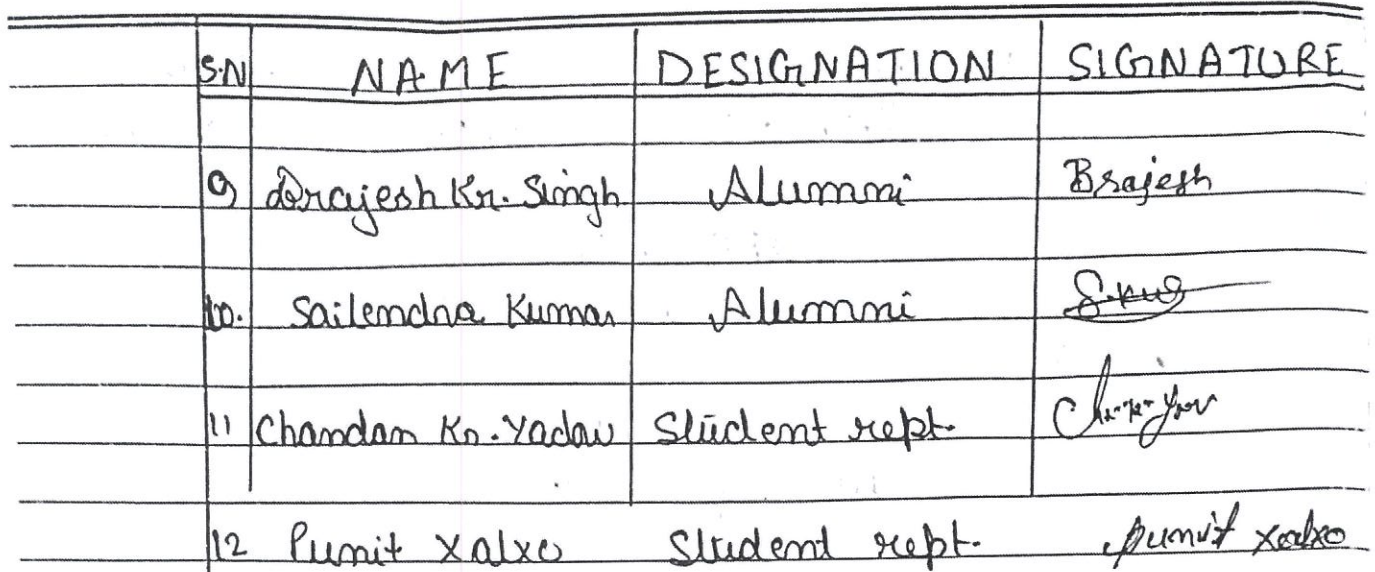 S.N NAME DESIGNATION SIGNATURE
9 Brajesh Kr. Singh Alumni Brajesh
10. Sailendra Kumar Alumni
11 Chandan Kr. Yadav Student rept.
12 Punit Xalxo Student rept. Punit Xalxo